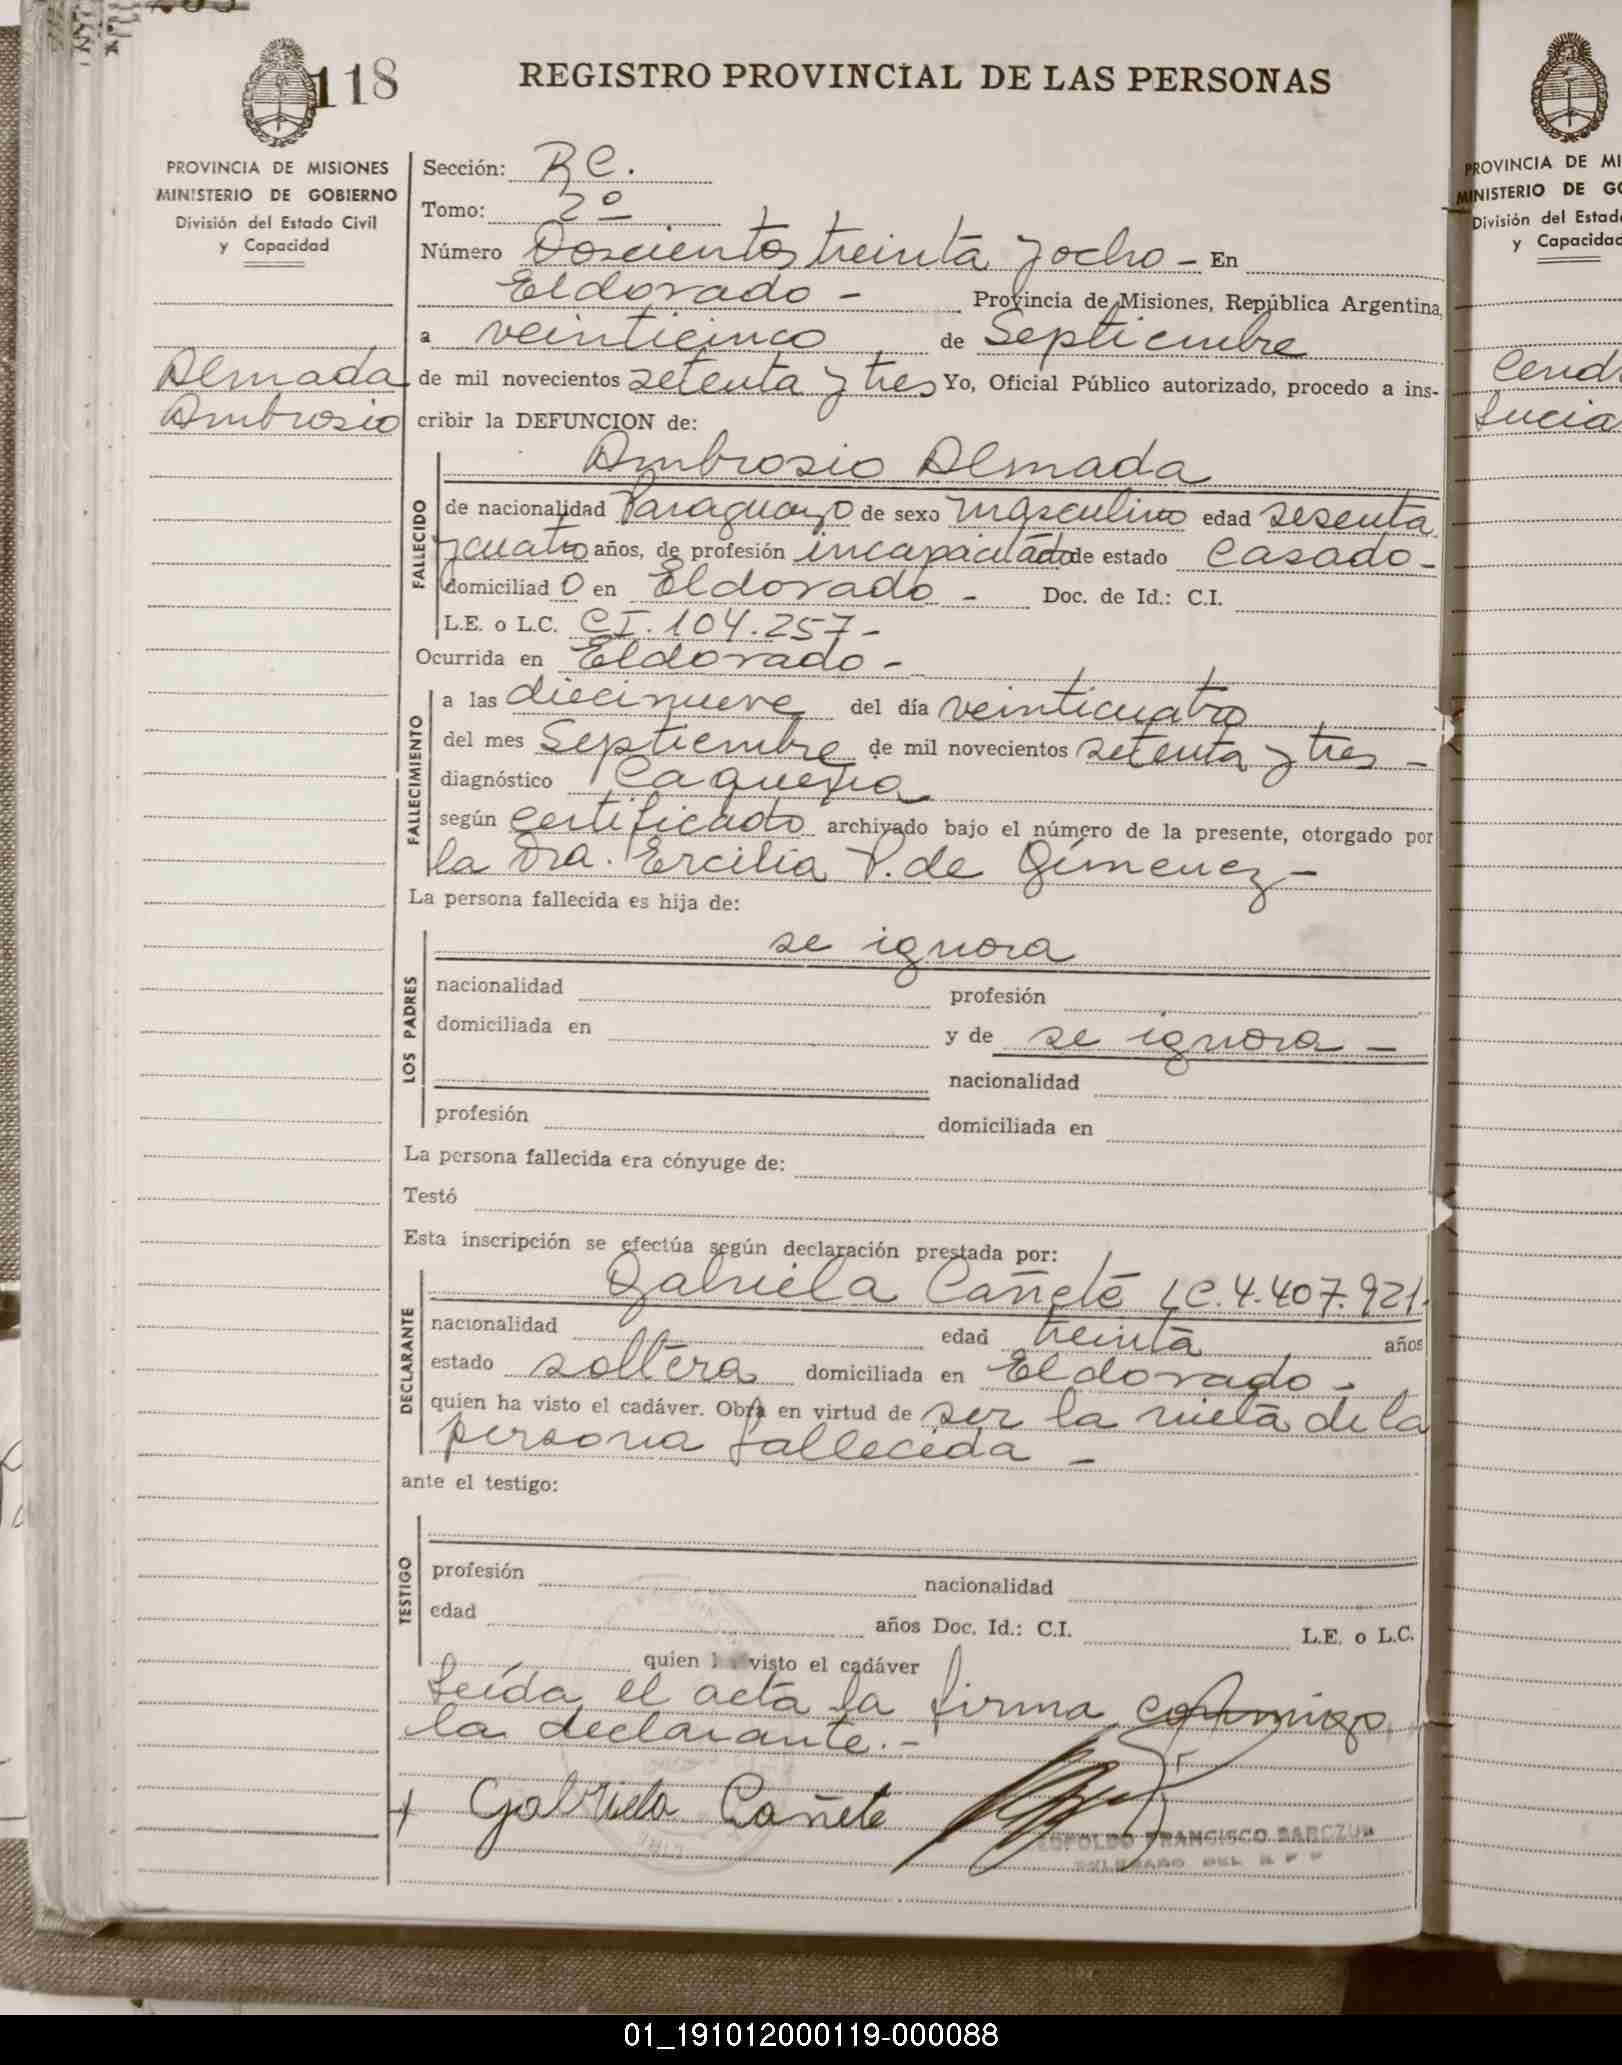 118
REGISTRO PROVINCIAL DE LAS PERSONAS
PROVINCIA DE MISIONES
MINISTERIO DE GOBIERNO
División del Estado Civil
y Capacidad
Almada
Ambrosio
Sección: R C.
Tomo: 2º
Número Doscientos treinta y ocho - En
Eldorado - Provincia de Misiones, República Argentina,
a veinticinco de Septiembre
de mil novecientos setenta y tres Yo, Oficial Público autorizado, procedo a ins-
cribir la DEFUNCION de:
Ambrosio Almada
FALLECIDO
de nacionalidad Paraguayo de sexo masculino edad sesenta
y cuatro años, de profesión incapacitado de estado casado -
domiciliad o en Eldorado - Doc. de Id.: C.I.
L.E. o L.C. CI. 104.257 -
Ocurrida en Eldorado -
FALLECIMIENTO
a las diecinueve del día veinticuatro
del mes Septiembre de mil novecientos setenta y tres -
diagnóstico Caquexia
según certificado archivado bajo el número de la presente, otorgado por
la Dra. Ercilia P. de Gimenez -
La persona fallecida es hija de:
LOS PADRES
se ignora
nacionalidad profesión
domiciliada en y de se ignora -
nacionalidad
profesión domiciliada en
La persona fallecida era cónyuge de:
Testó
Esta inscripción se efectúa según declaración prestada por:
DECLARANTE
Gabriela Cañete LC. 4.407.921.
nacionalidad edad treinta años
estado soltera domiciliada en Eldorado -
quien ha visto el cadáver. Obra en virtud de ser la nieta de la
persona fallecida -
ante el testigo:
TESTIGO
profesión nacionalidad
edad años Doc. Id.: C.I. L.E. o L.C.
quien visto el cadáver
Leída el acta la firma conmigo
la declarante.-
Gabriela Cañete
FRANCISCO
PROVINCIA DE MI
MINISTERIO DE GO
División del Estado
y Capacidad
Lucia
01_191012000119-000088